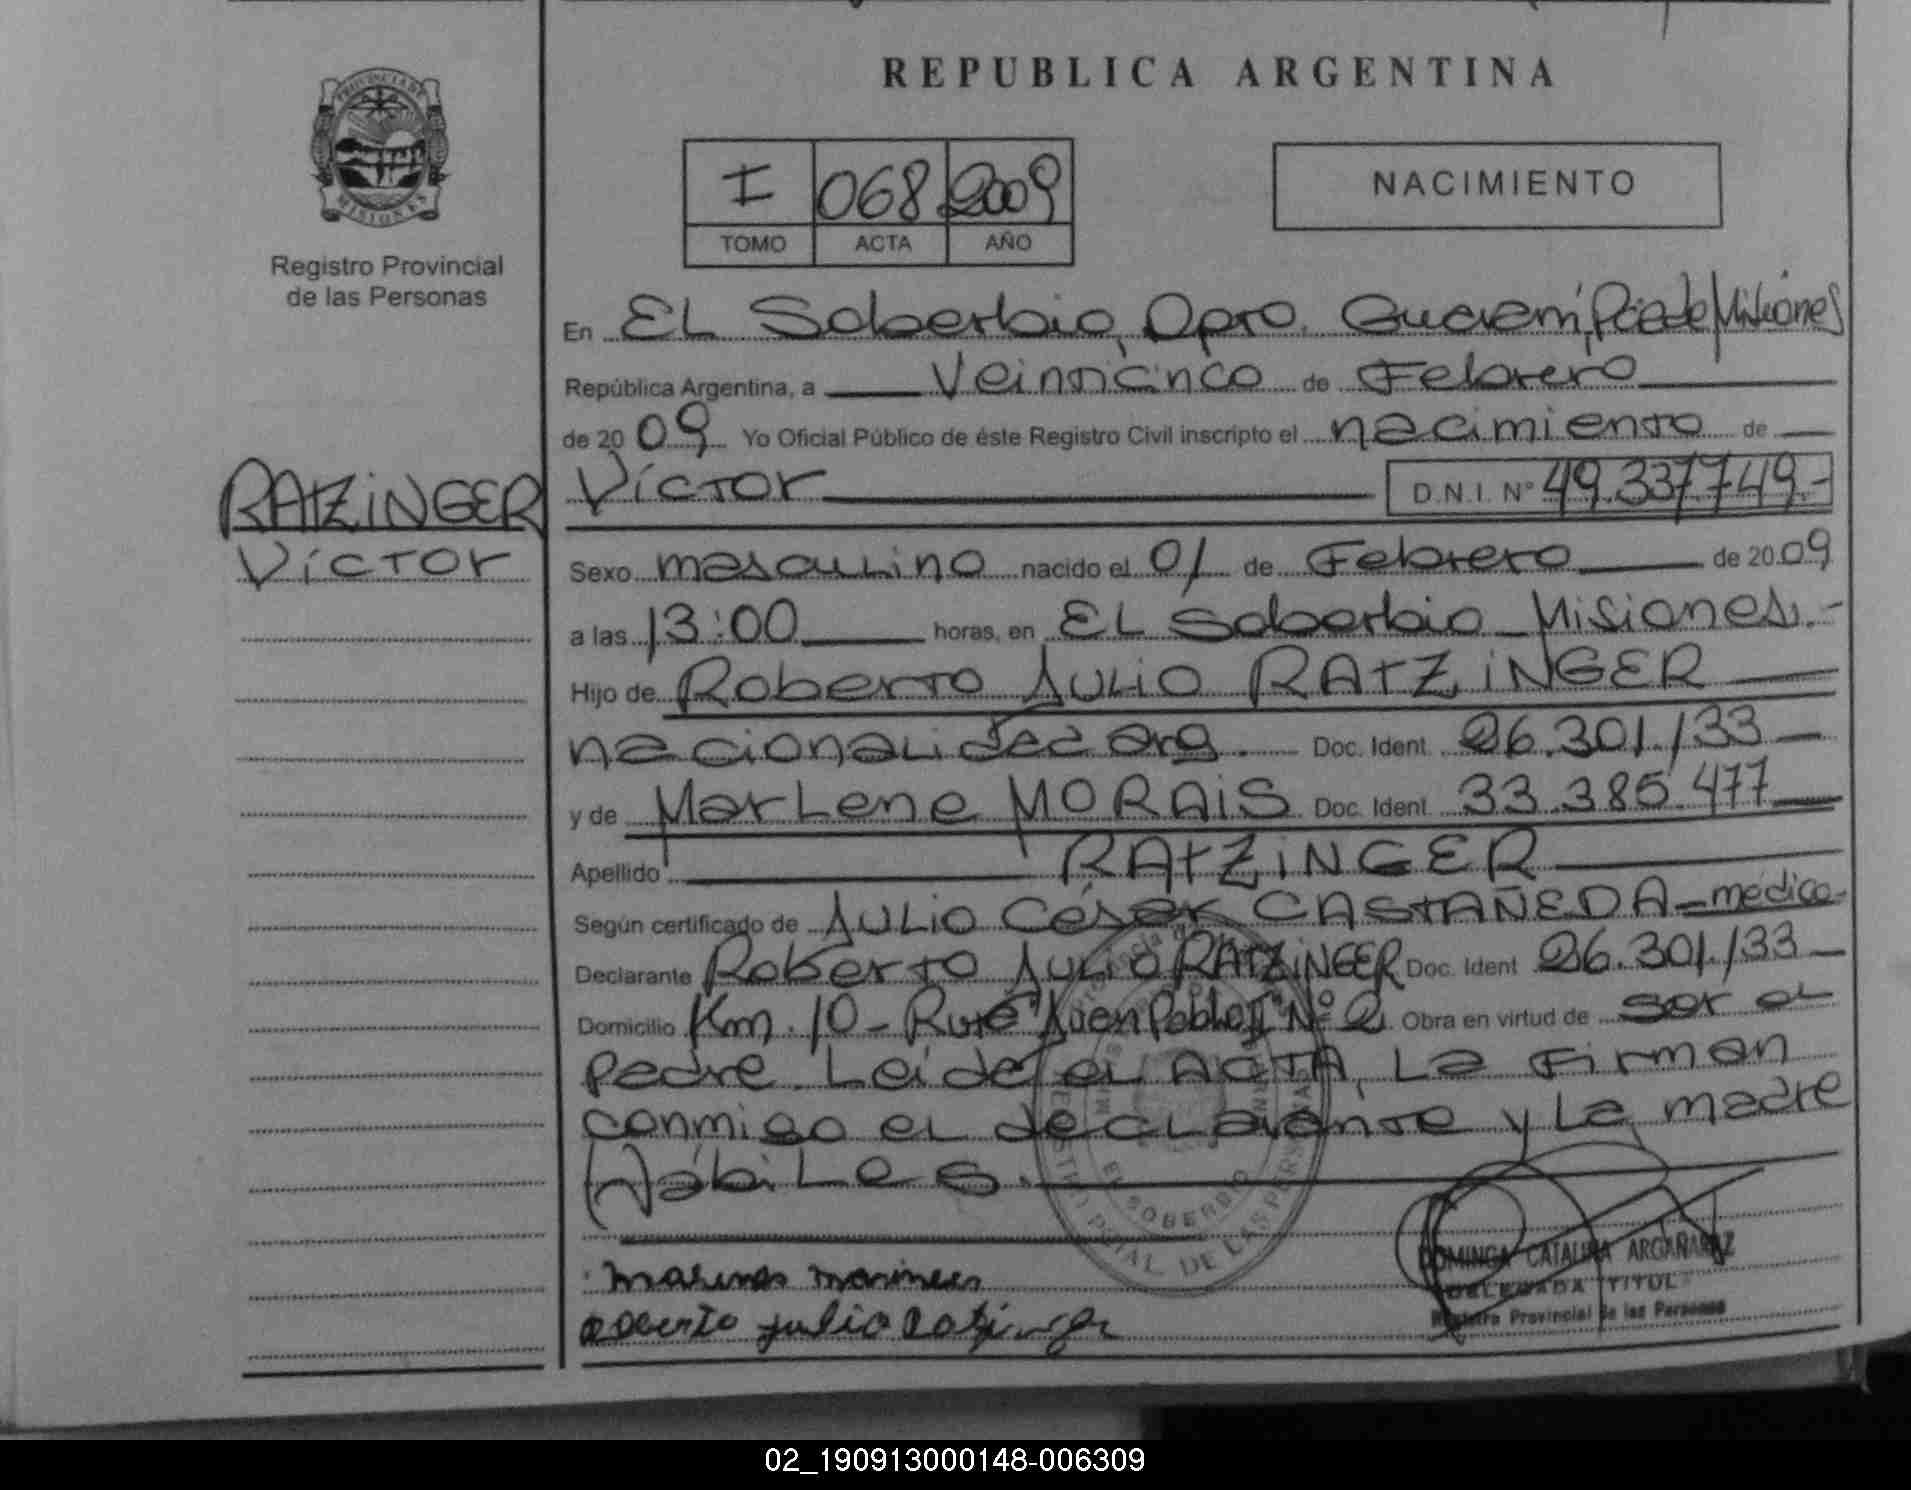 REPUBLICA ARGENTINA
PROVINCIA DE MISIONES
Registro Provincial
de las Personas
I 068 2009
TOMO ACTA AÑO
NACIMIENTO
En EL Soberbio, Dpto. Guaraní, Pcia de Misiones
República Argentina, a Veinticinco de Febrero
de 20 09 Yo Oficial Público de éste Registro Civil inscripto el nacimiento de
RATZiNGER
Víctor
Víctor D.N.I. N° 49.337.749.-
Sexo masculino nacido el 01 de Febrero de 20 09
a las 13:00 horas, en EL Soberbio - Misiones.-
Hijo de Roberto Julio RATZiNGER
nacionalidad arg. Doc. Ident. 26.301.133
y de Marlene MORAiS Doc. Ident. 33.385.477
Apellido RATZiNGER
Según certificado de Julio César CASTAÑEDA - médico-
Declarante Roberto Julio RATZiNGER Doc. Ident. 26.301.133
Domicilio Km. 10 - Ruta "Juan Pablo II" N° 2 Obra en virtud de ser el
padre. Leída el ACTA, La Firman
conmigo el declarante y La madre
Hábiles.
EL SOBERBIO
DE LAS PERSONAS
Roberto julio Ratzinger
DOMINGA CATALINA ARGAÑARAZ
DELEGADA TITUL
Registro Provincial de las Personas
02_190913000148-006309